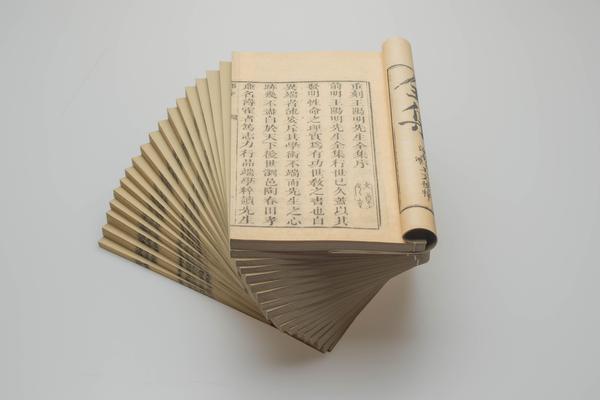 全集
重刻王陽明先生全集序
前明王陽明先生全集行世已久蓋以其
發明性命之理實爲有功世敎之書也自
異端者流妄斥其學術不端而先生之心
跡幾不盡白於天下後世瀏邑陶春田孝
廉名潯霍者篤志力行品端學粹讀先生